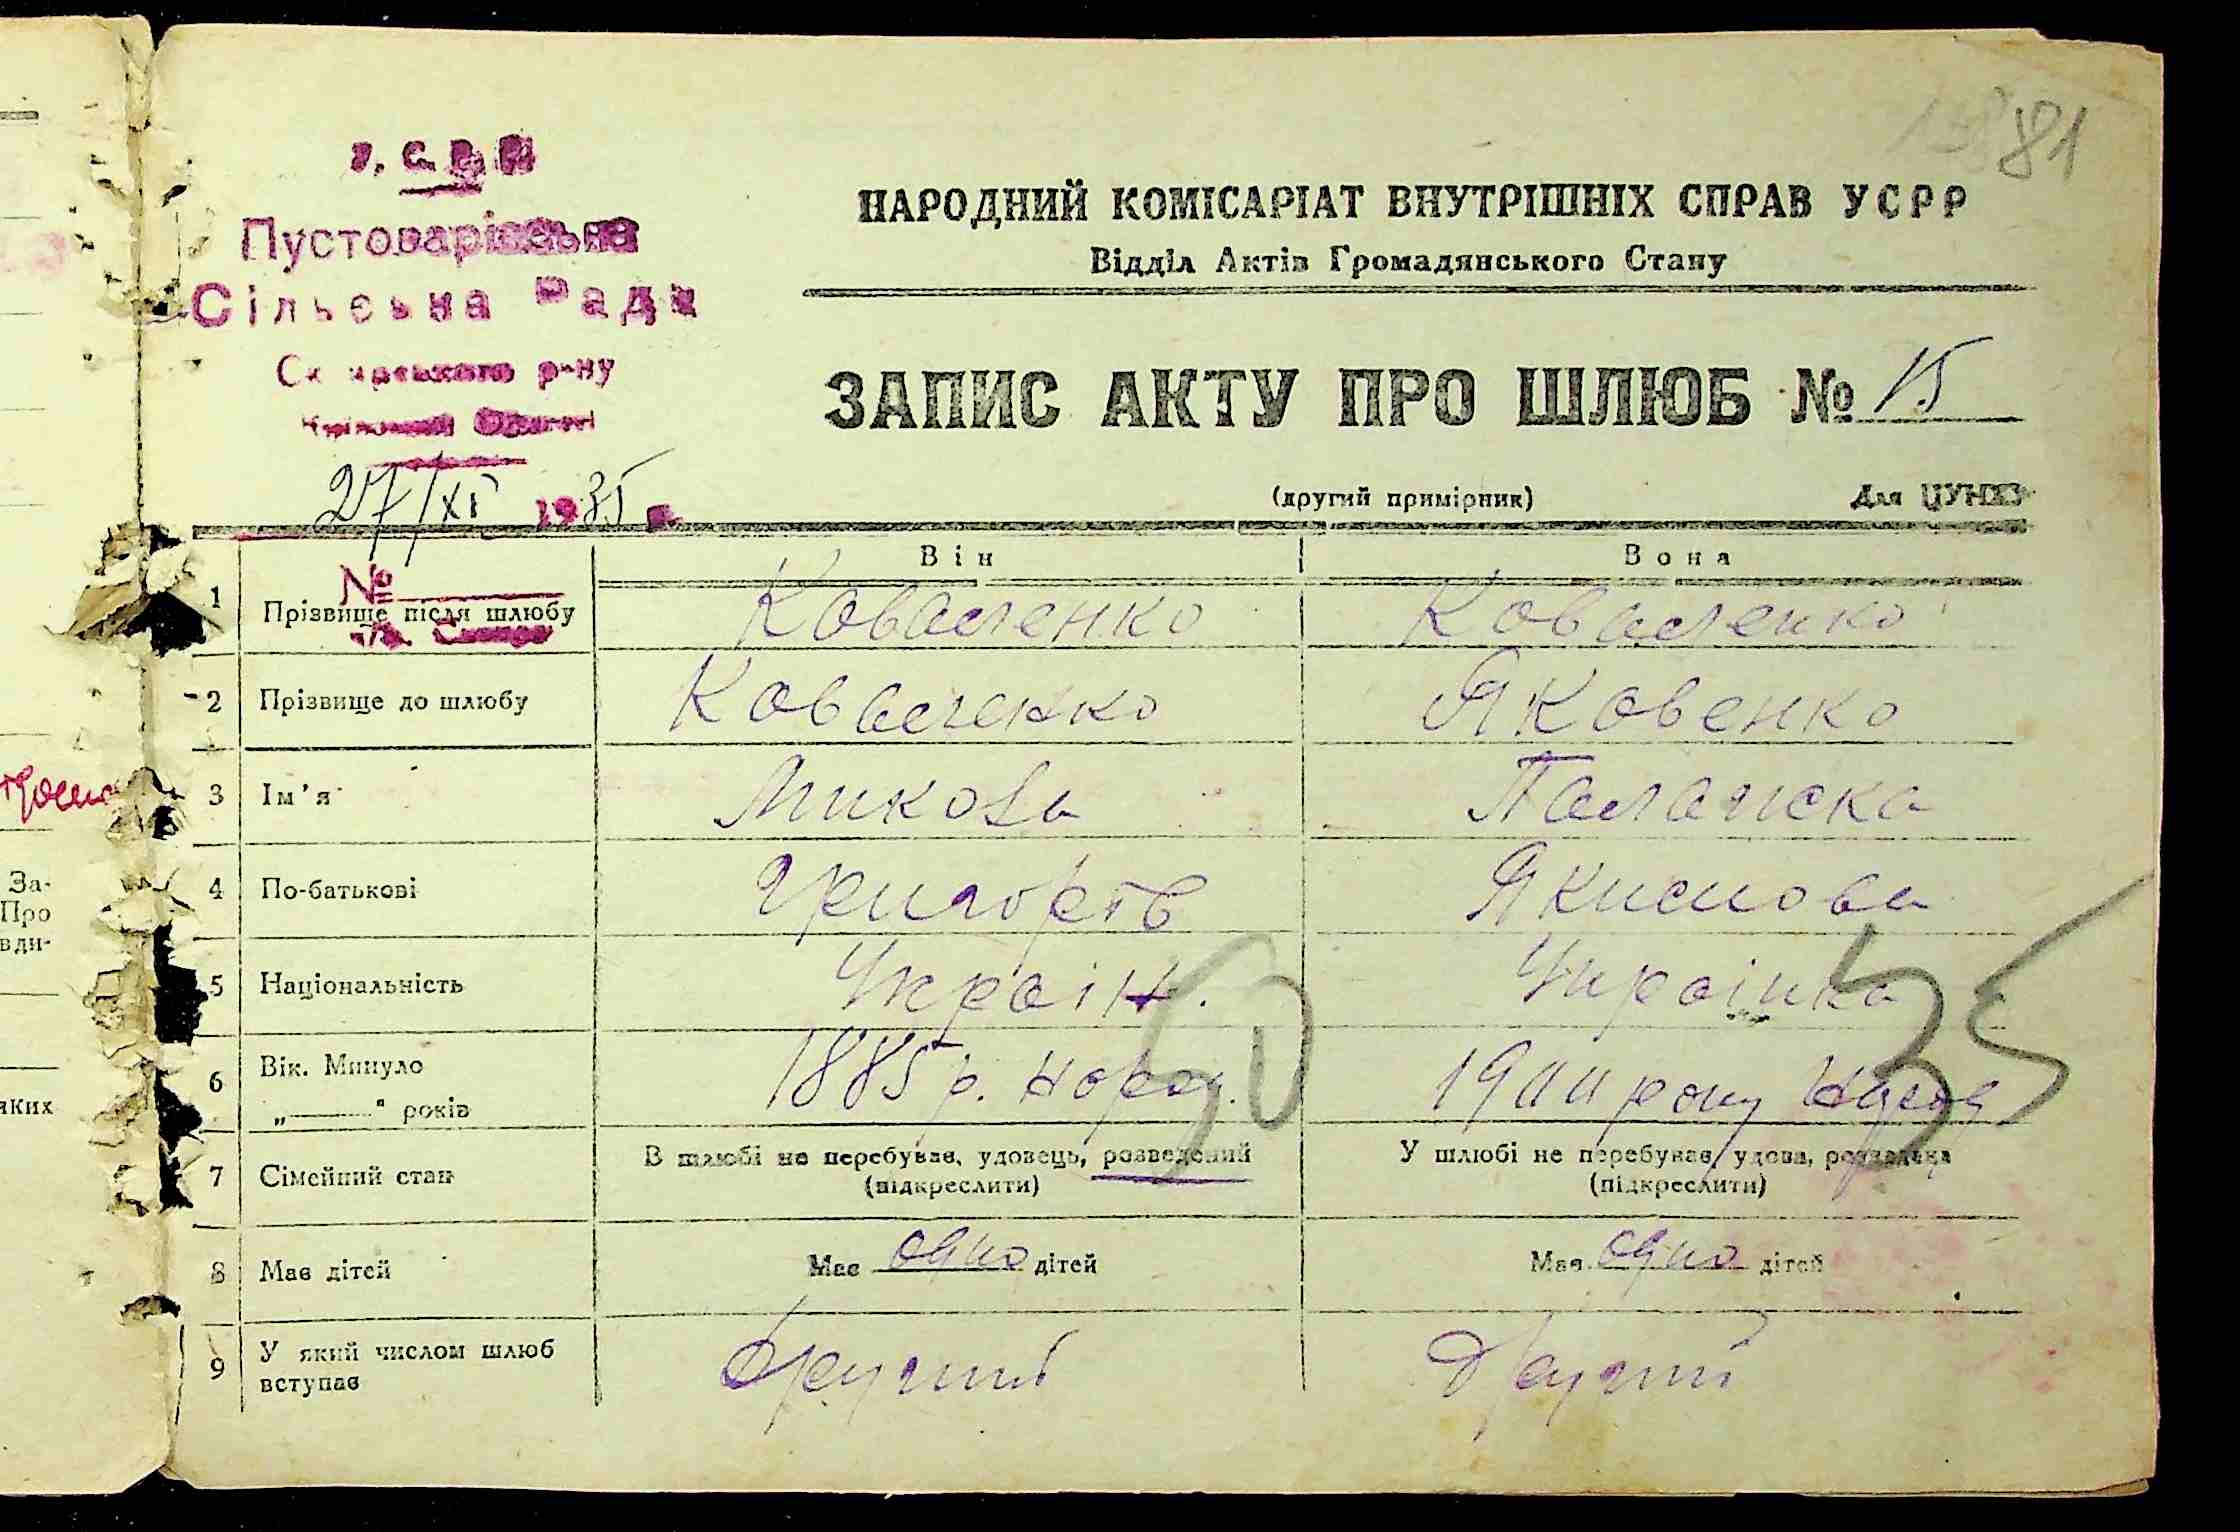 81
У. С. Р. Р.
Пустоварівська
Сільська Рада
Сквирського р-ну
Київської Області
27/XI 1935 р.
№
НАРОДНИЙ КОМІСАРІАТ ВНУТРІШНІХ СПРАВ УСРР
Відділ Актів Громадянського Стану
ЗАПИС АКТУ ПРО ШЛЮБ № 15
(другий примірник) Для ЦУНХО
Він Вона
1 Прізвище після шлюбу Коваленко Коваленко
2 Прізвище до шлюбу Коваленко Яковенко
3 Ім'я Микола Палажка
4 По-батькові Григорів Якимова
5 Національність Україн. Українка
6 Вік. Минуло 1885 р. народ. 1900 року народ
„ “ років
50 35
7 Сімейний стан В шлюбі не перебував, удовець, розведений У шлюбі не перебував, удова, розведена
(підкреслити) (підкреслити)
8 Має дітей Має одно дітей Має одно дітей
9 У який числом шлюб Другий Другий
вступає
За-
Про
вди-
яких